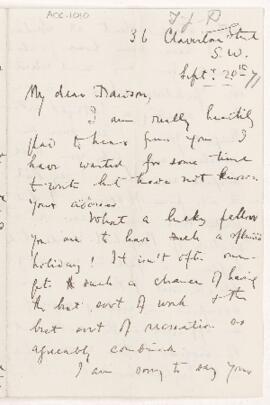 ACC-1010
T J P
36 Claverton Street
S.W.
Septr 20th /71
My dear Dawson,
I am really heartily
glad to hear from you. I
have wanted for some time
to write but have not known
your address
What a lucky fellow
you are to have such a splendid
holiday! It isn't often one
gets such a chance of having
the best sort of work & the
best sort of recreation so
agreeably combined.
I am sorry to say your